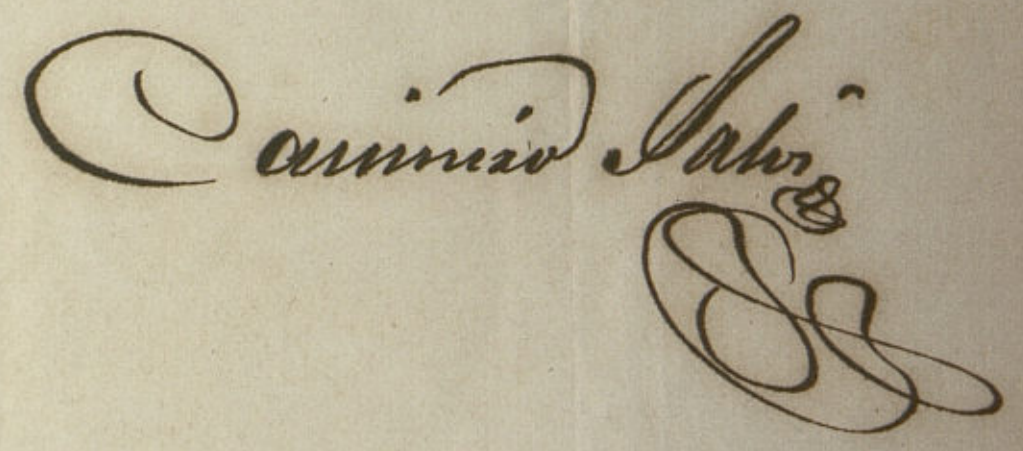 Casimiro Salvi